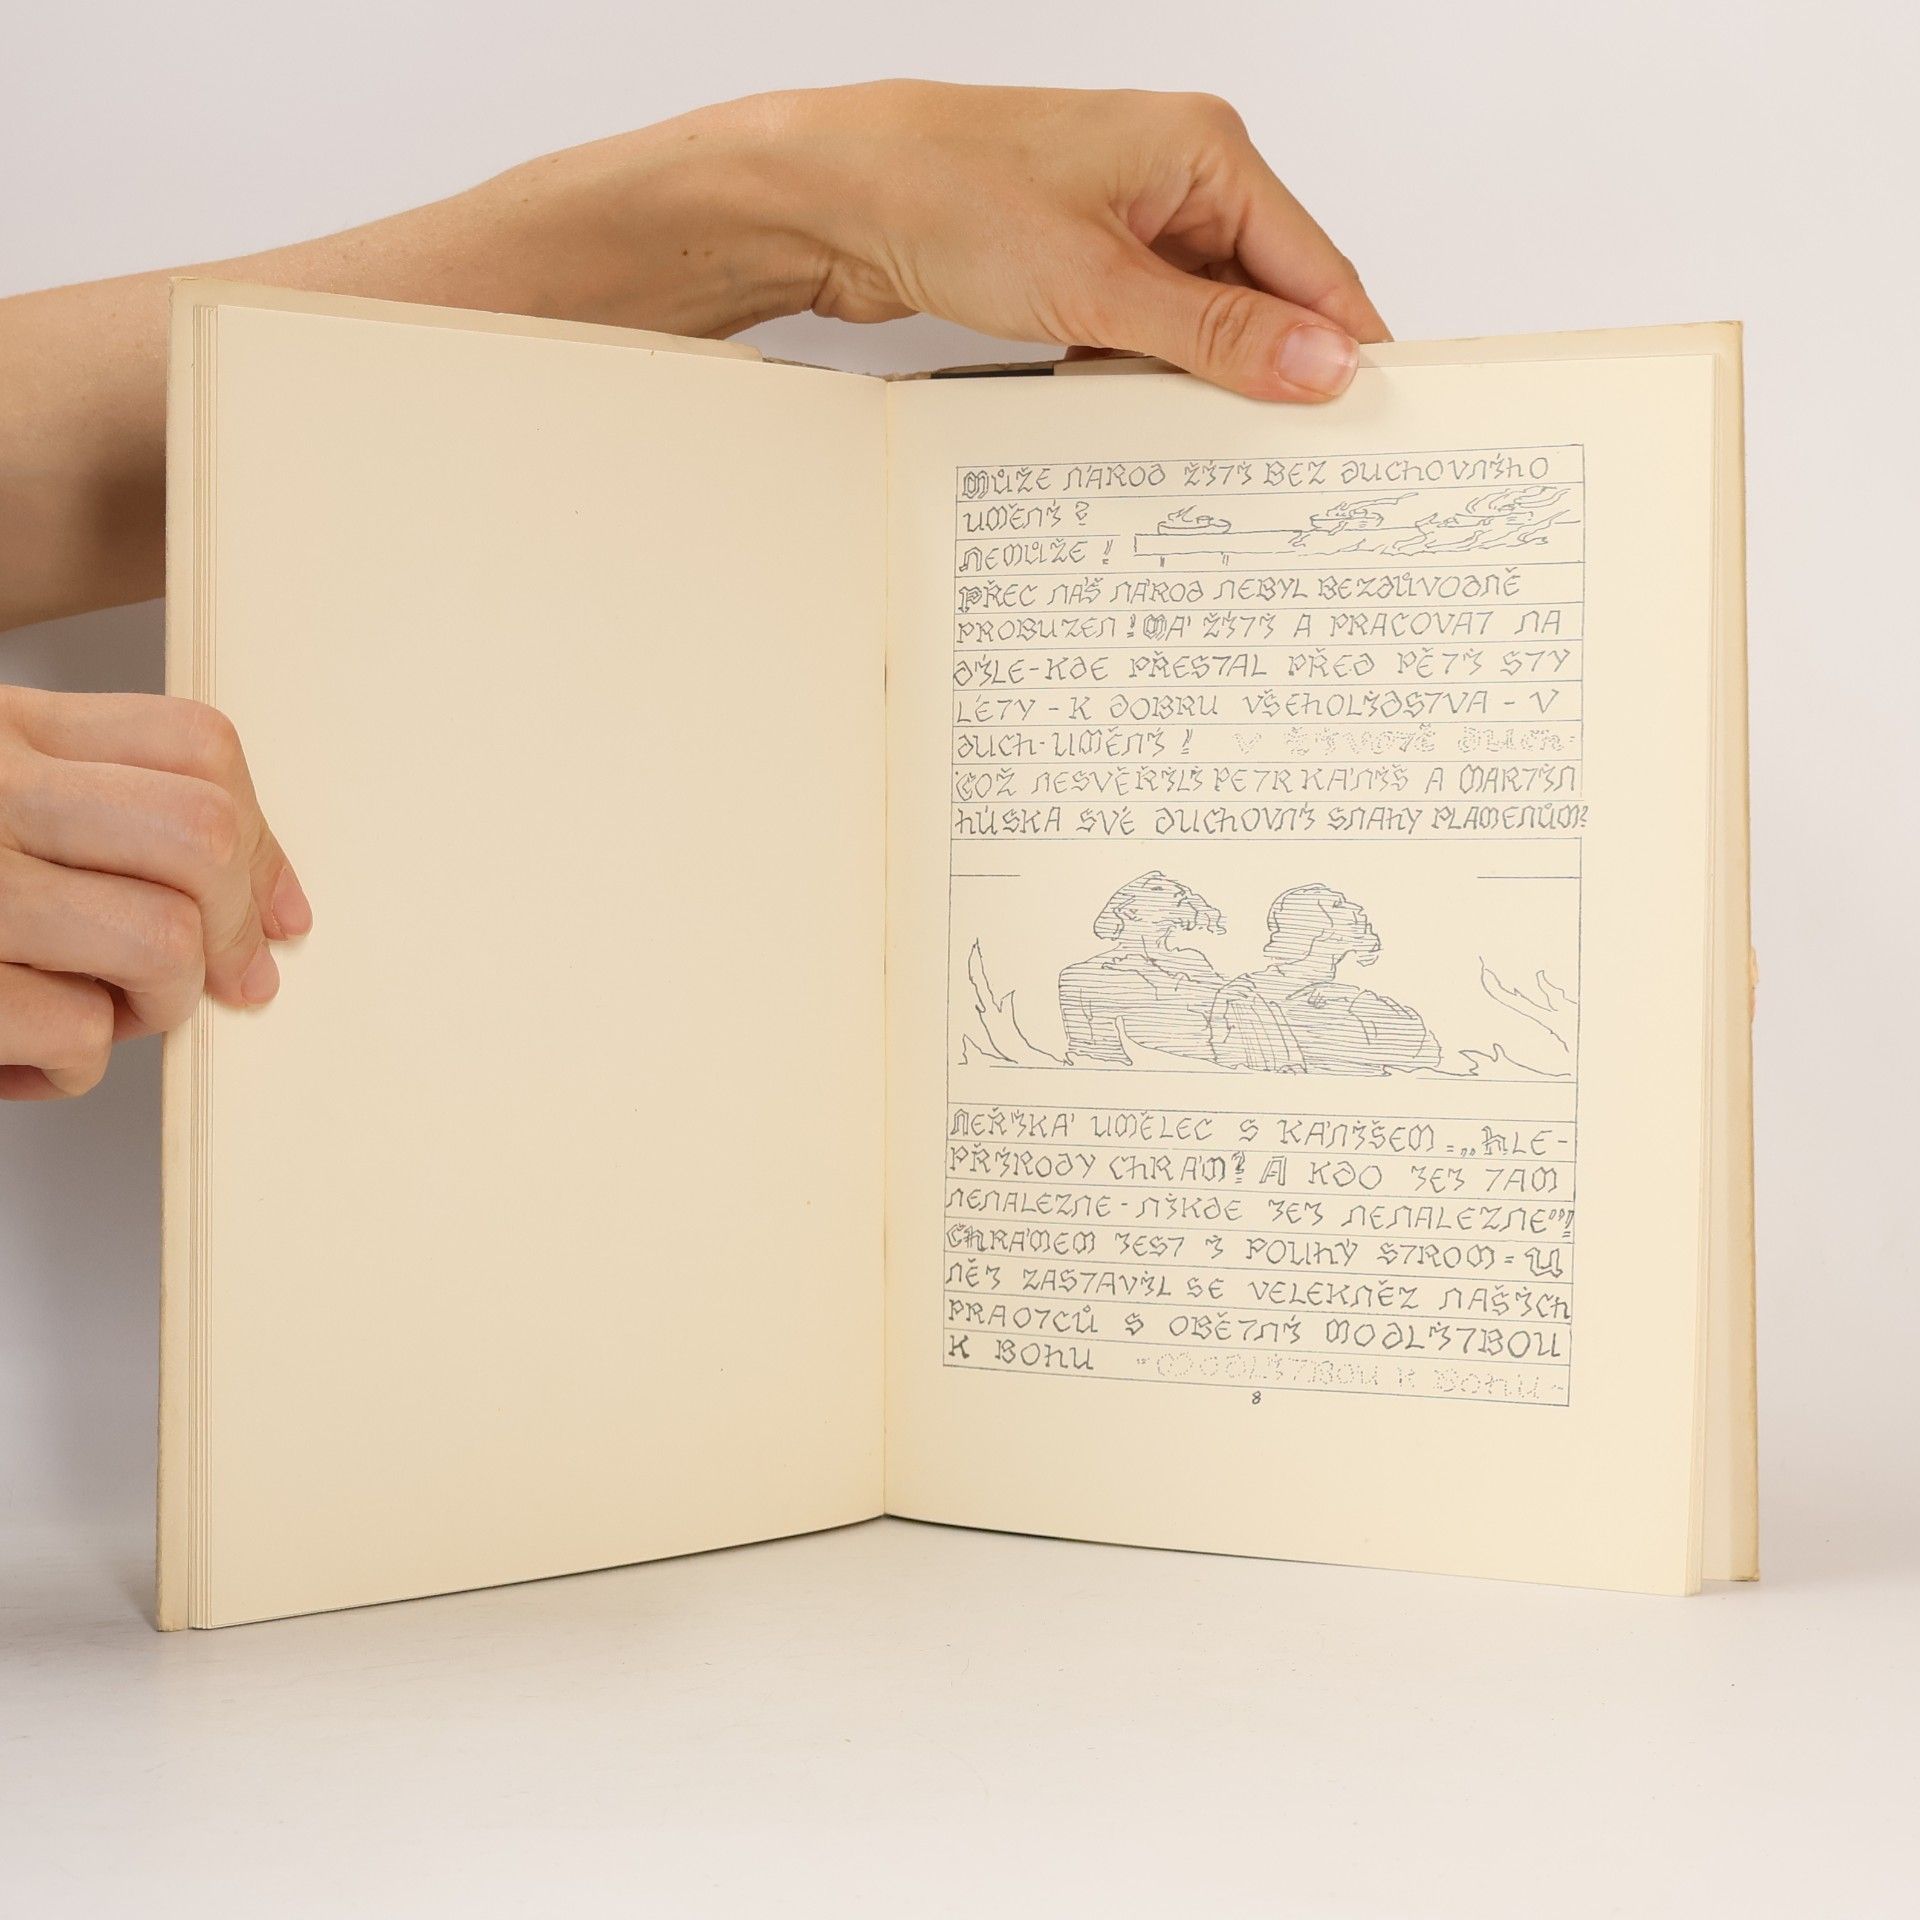 MŮŽE NÁROD ŽÍTI BEZ DUCHOVNÍHO
UMĚNÍ?
NEMŮŽE!
PŘEC NÁŠ NÁROD NEBYL BEZDŮVODNĚ
PROBUZEN! MÁ ŽÍTI A PRACOVAT NA
DÍLE-KDE PŘESTAL PŘED PĚTI STY
LÉTY - K DOBRU VŠEHOLIDSTVA - V
DUCH-UMĚNÍ! V ŽIVOTĚ DUCH-
COŽ NESVĚŘILI PETR KÁNIŠ A MARTIN
HÚSKA SVÉ DUCHOVNÍ SNAHY PLAMENŮM?
NEŘÍKÁ UMĚLEC S KÁNIŠEM = „HLE-
PŘÍRODY CHRÁM! A KDO JEJ TAM
NENALEZNE - NIKDE JEJ NENALEZNE"!
CHRÁMEM JEST I POUHÝ STROM = U
NĚJ ZASTAVIL SE VELEKNĚZ NAŠICH
PRAOTCŮ S OBĚTNÍ MODLITBOU
K BOHU -MODLITBOU K BOHU-
8